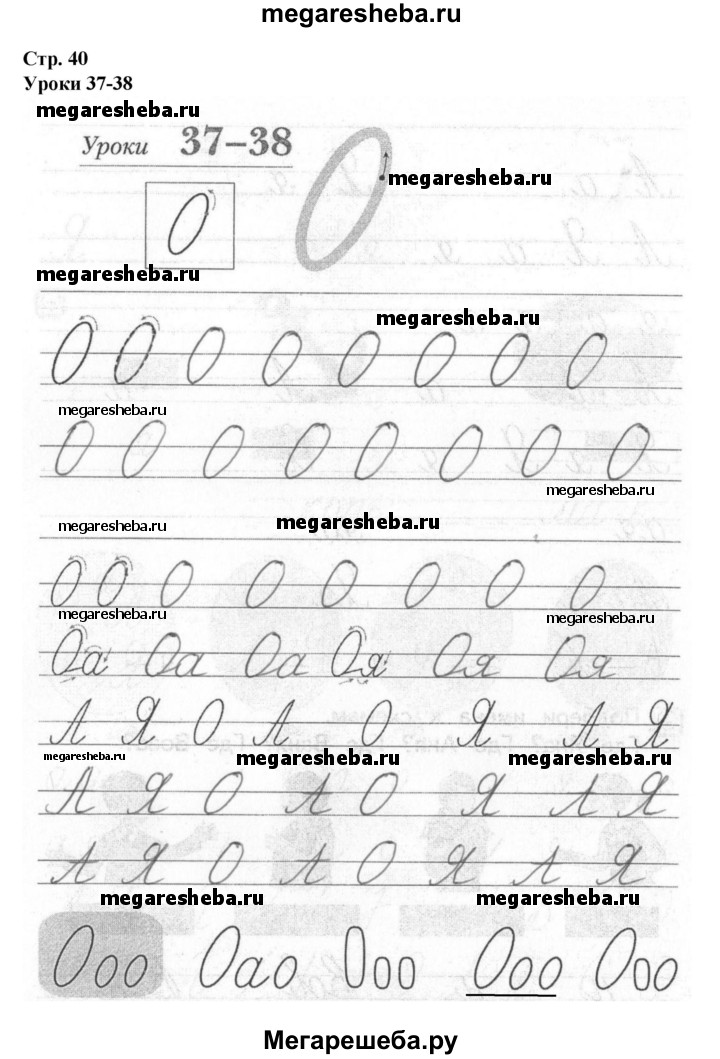 megaresheba.ru
Стр. 40
Уроки 37-38
megaresheba.ru
Уроки 37–38
О
megaresheba.ru
О
megaresheba.ru
megaresheba.ru
О О О О О О О О
megaresheba.ru
О О О О О О О О
megaresheba.ru
megaresheba.ru megaresheba.ru
О О О О О О О О
megaresheba.ru megaresheba.ru
Оа Оа Оа Оя Оя Оя
А Я О А О Я А Я
megaresheba.ru megaresheba.ru megaresheba.ru
А Я О А О Я А Я
А Я О А О Я А Я
megaresheba.ru megaresheba.ru
Ооо Оао Ооо Ооо Ооо
Мегарешеба.ру